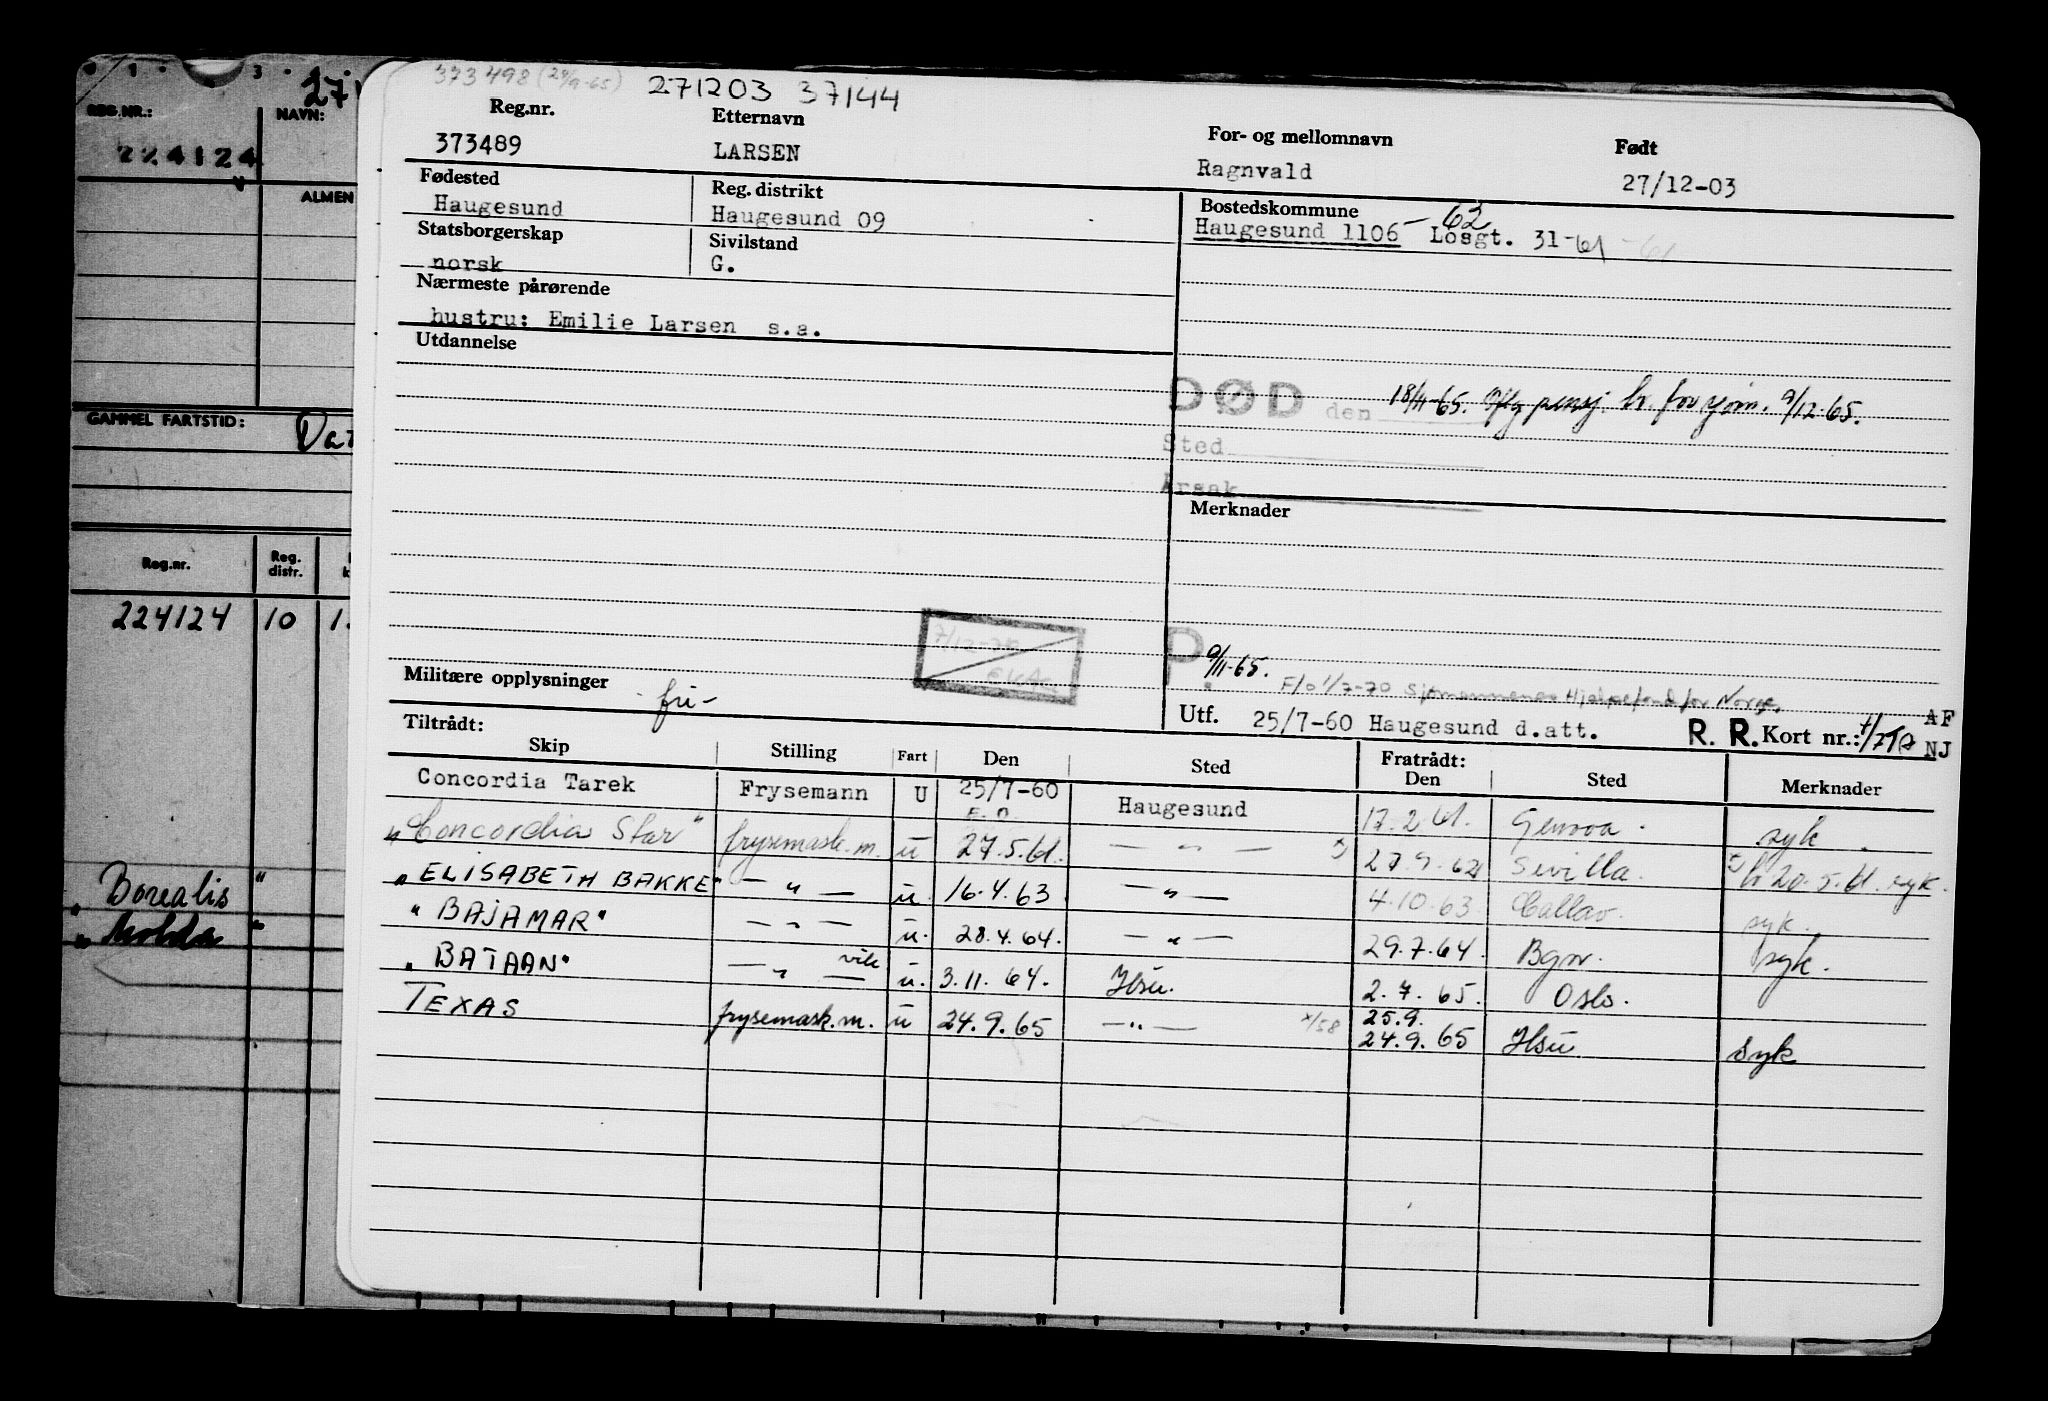 373498 (24/9-65) 271203 37144
Reg.nr. Etternavn For- og mellomnavn Født
373489 LARSEN Ragnvald 27/12-03
Fødested Reg. distrikt Bostedskommune
Haugesund Haugesund 09 Haugesund 1106 - 62 Losgt. 31-61 -61
Statsborgerskap Sivilstand
norsk G.
Nærmeste pårørende
hustru: Emilie Larsen s.a.
Utdannelse
DØD den 18/11-65. Iflg pensj. br. 9/12.65.
Sted
Årsak
Merknader
7/12-70
P. 9/11-65.
F/o 1/7-70 Sjømannenes Hjelpefond for Norge.
Militære opplysninger -fri-
Utf. 25/7-60 Haugesund d.att. R. R. Kort nr.: AF NJ
Tiltrådt: Fratrådt:
Skip Stilling Fart Den Sted Den Sted Merknader
Concordia Tarek Frysemann U 25/7-60 Haugesund 17.2.61. Genova. syk.
"Concordia Star" frysemask.m. u 27.5.61. — " — x) 27.9.62 Sevilla. x) br 20.5.61. syk.
"ELISABETH BAKKE" — " — u. 16.4.63 — " — 4.10.63 Callao. syk.
"BAJAMAR" — " — u. 28.4.64. — " — 29.7.64 Bgn. syk.
"BATAAN" — " — vik u. 3.11.64. Hsu. 2.7.65. Oslo.
TEXAS frysemask.m. u 24.9.65 — " — x/58 25.9. 24.9.65 Hsu. Syk
0 1 3
271
REG.NR.: NAVN:
224124
ALMEN
GAMMEL FARTSTID:
Reg.nr. Reg. distr.
224124 10 1.
"Borealis"
"Molda"